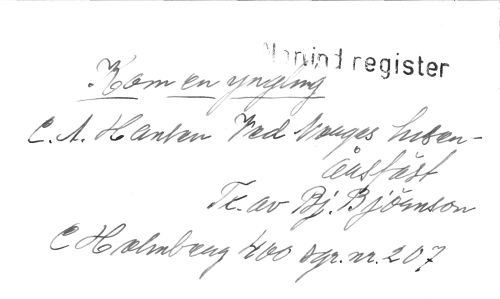 register
Kom en yngling
C. A. Hansen Ved Norges tusen-
årsfäst
Tx. av Bj. Björnson
C Holmberg 400 sgr. nr. 207